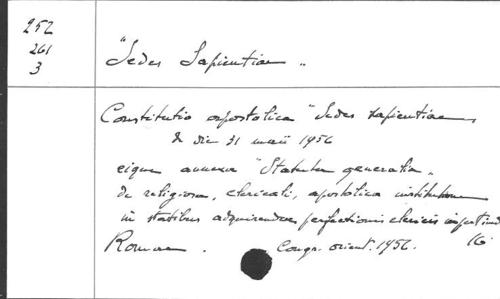 252
261
3
"Sedes Sapientiae"
Constitutio apostolica "Sedes Sapientiae"
d. die 31 maii 1956
eique annexa "Statuta generalia"
de religiosa, clericali, apostolica institutione
in statibus adquirendae perfectionis clericis impertienda
Romae. Congr. orient. 1956. 16.